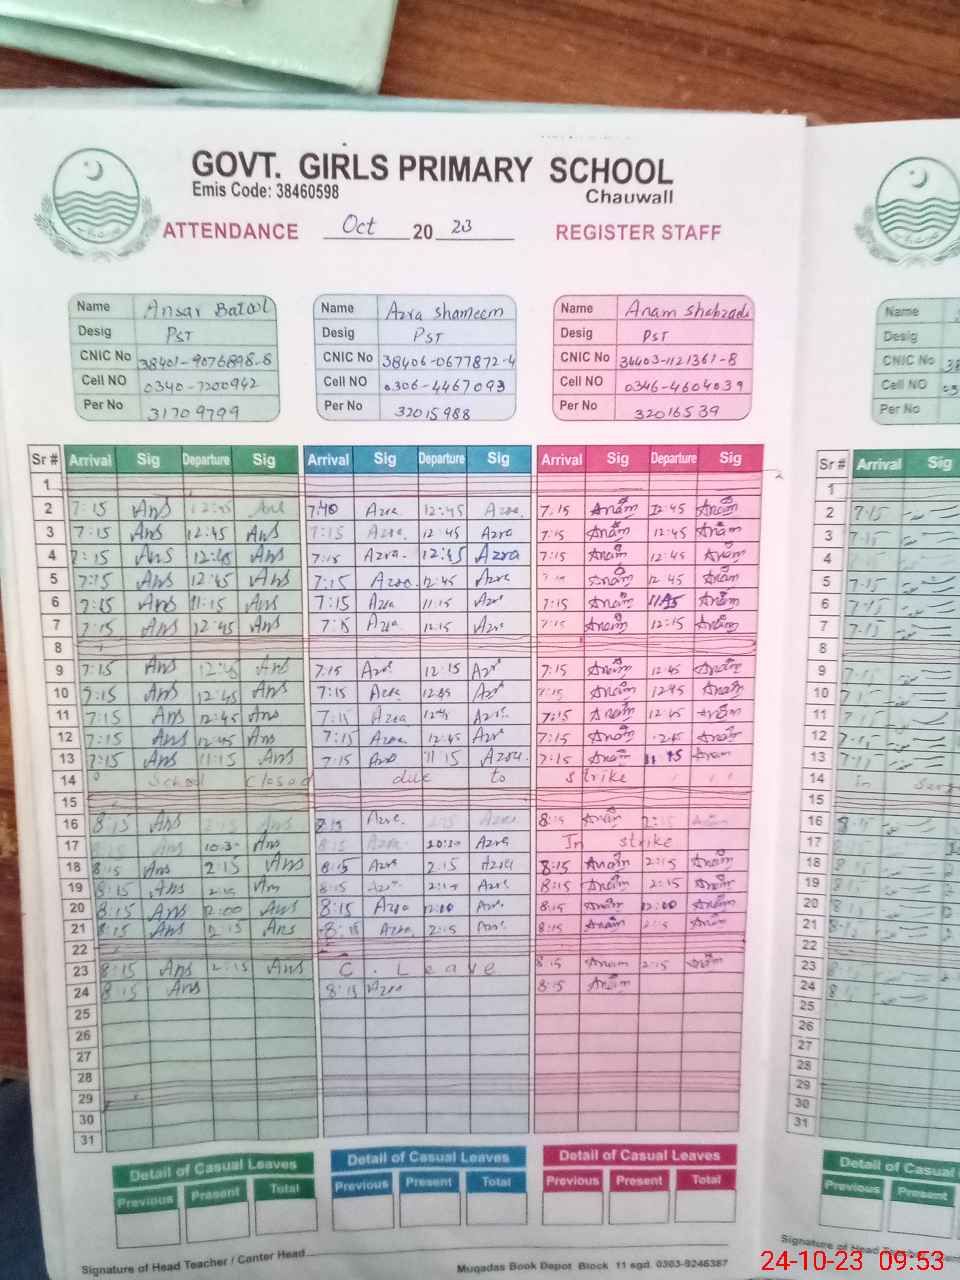 GOVT. GIRLS PRIMARY SCHOOL
Emis Code: 38460598
Chauwall
ATTENDANCE Oct 20 23 REGISTER STAFF
Name Ansar Batool Name Azra Shameem Name Anam Shahzadi Name
Desig PST Desig PST Desig PST Desig
CNIC No 38401-9076898-8 CNIC No 38406-0677872-4 CNIC No 34403-1121361-8 CNIC No 38
Cell NO 0340-7200942 Cell NO 0306-4467093 Cell NO 0346-4604039 Cell NO 03
Per No 31709799 Per No 32015988 Per No 32016539 Per No
Sr # Arrival Sig Departure Sig Arrival Sig Departure Sig Arrival Sig Departure Sig Sr # Arrival Sig
1 1
2 7:15 Ans 12:45 Ans 7:40 Azra 12:45 Azra 7:15 Anam 12:45 Anam 2 7:15
3 7:15 Ans 12:45 Ans 7:15 Azra 12:45 Azra 7:15 Anam 12:45 Anam 3 7:15
4 7:15 Ans 12:45 Ans 7:15 Azra 12:45 Azra 7:15 Anam 12:45 Anam 4
5 7:15 Ans 12:45 Ans 7:15 Azra 12:45 Azra Anam 12 45 Anam 5 7:15
6 7:15 Ans 11:15 Ans 7:15 Azra 11:15 Azr 7:15 Anam Anam 6 7:15
7 7:15 Ans 12:45 Ans 7:15 Azra 12:15 Azra 7:15 Anam 12:15 Anam 7 7:15
8 8
9 7:15 Ans 12:45 Ans 7:15 Azr 12:15 Azr 7:15 Anam 12:45 Anam 9 7:15
10 7:15 Ans 12:45 Ans 7:15 Azra 12:45 Azr 7:15 Anam 12:45 Anam 10
11 7:15 Ans 12:45 Ans 7:15 Azra Azr 7:15 Anam 12:45 Anam 11
12 7:15 Ans 12:45 Ans 7:15 Azra 12:45 Azr 7:15 Anam 2:45 Anam 12
13 7:15 Ans 11:15 Ans 7:15 Azra 11 15 Azra 7:15 Anam Anam 13
14 School Closed due to strike 14 in
15 15
16 8:15 Ans 2:15 Ans Azra 2:15 Azra 8:15 Anam 2:15 Anam 16 8:15
17 Ans 10:30 Ans 8:15 Azra 10:30 Azra In strike 17
18 8:15 Ans 2:15 Ans 8:15 Azra 2:15 Azra 8:15 Anam 2:15 Anam 18
19 8:15 Ans 2:15 Ans 8:15 Azra 2:15 Azra 8:15 Anam 2:15 Anam 19
20 8:15 Ans 12:00 Ans 8:15 Azra 12:00 Azra 8:15 Anam 12:00 Anam 20
21 8:15 Ans 2:15 Ans 8:15 Azra 2:15 Azra 8:15 Anam 2:15 Anam 21
22 22
23 8:15 Ans 2:15 Ans C. Leave 8:15 Anam 2:15 Anam 23
24 8:15 Ans 8:15 Azra 8:15 Anam 24
25 25
26 26
27 27
28 28
29 29
30 30
31 31
Detail of Casual Leaves Detail of Casual Leaves Detail of Casual Leaves Detail of Casual
Previous Present Total Previous Present Total Previous Present Total Previous Present
Signature of Head Teacher / Canter Head Muqadas Book Depot Block 11 sgd. 0303-9246387 Signature of Head Teacher / Canter
24-10-23 09:53